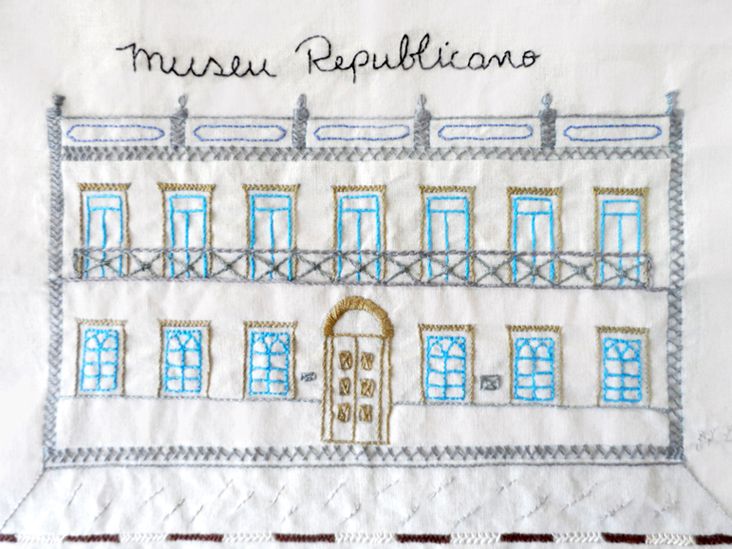 Museu Republicano